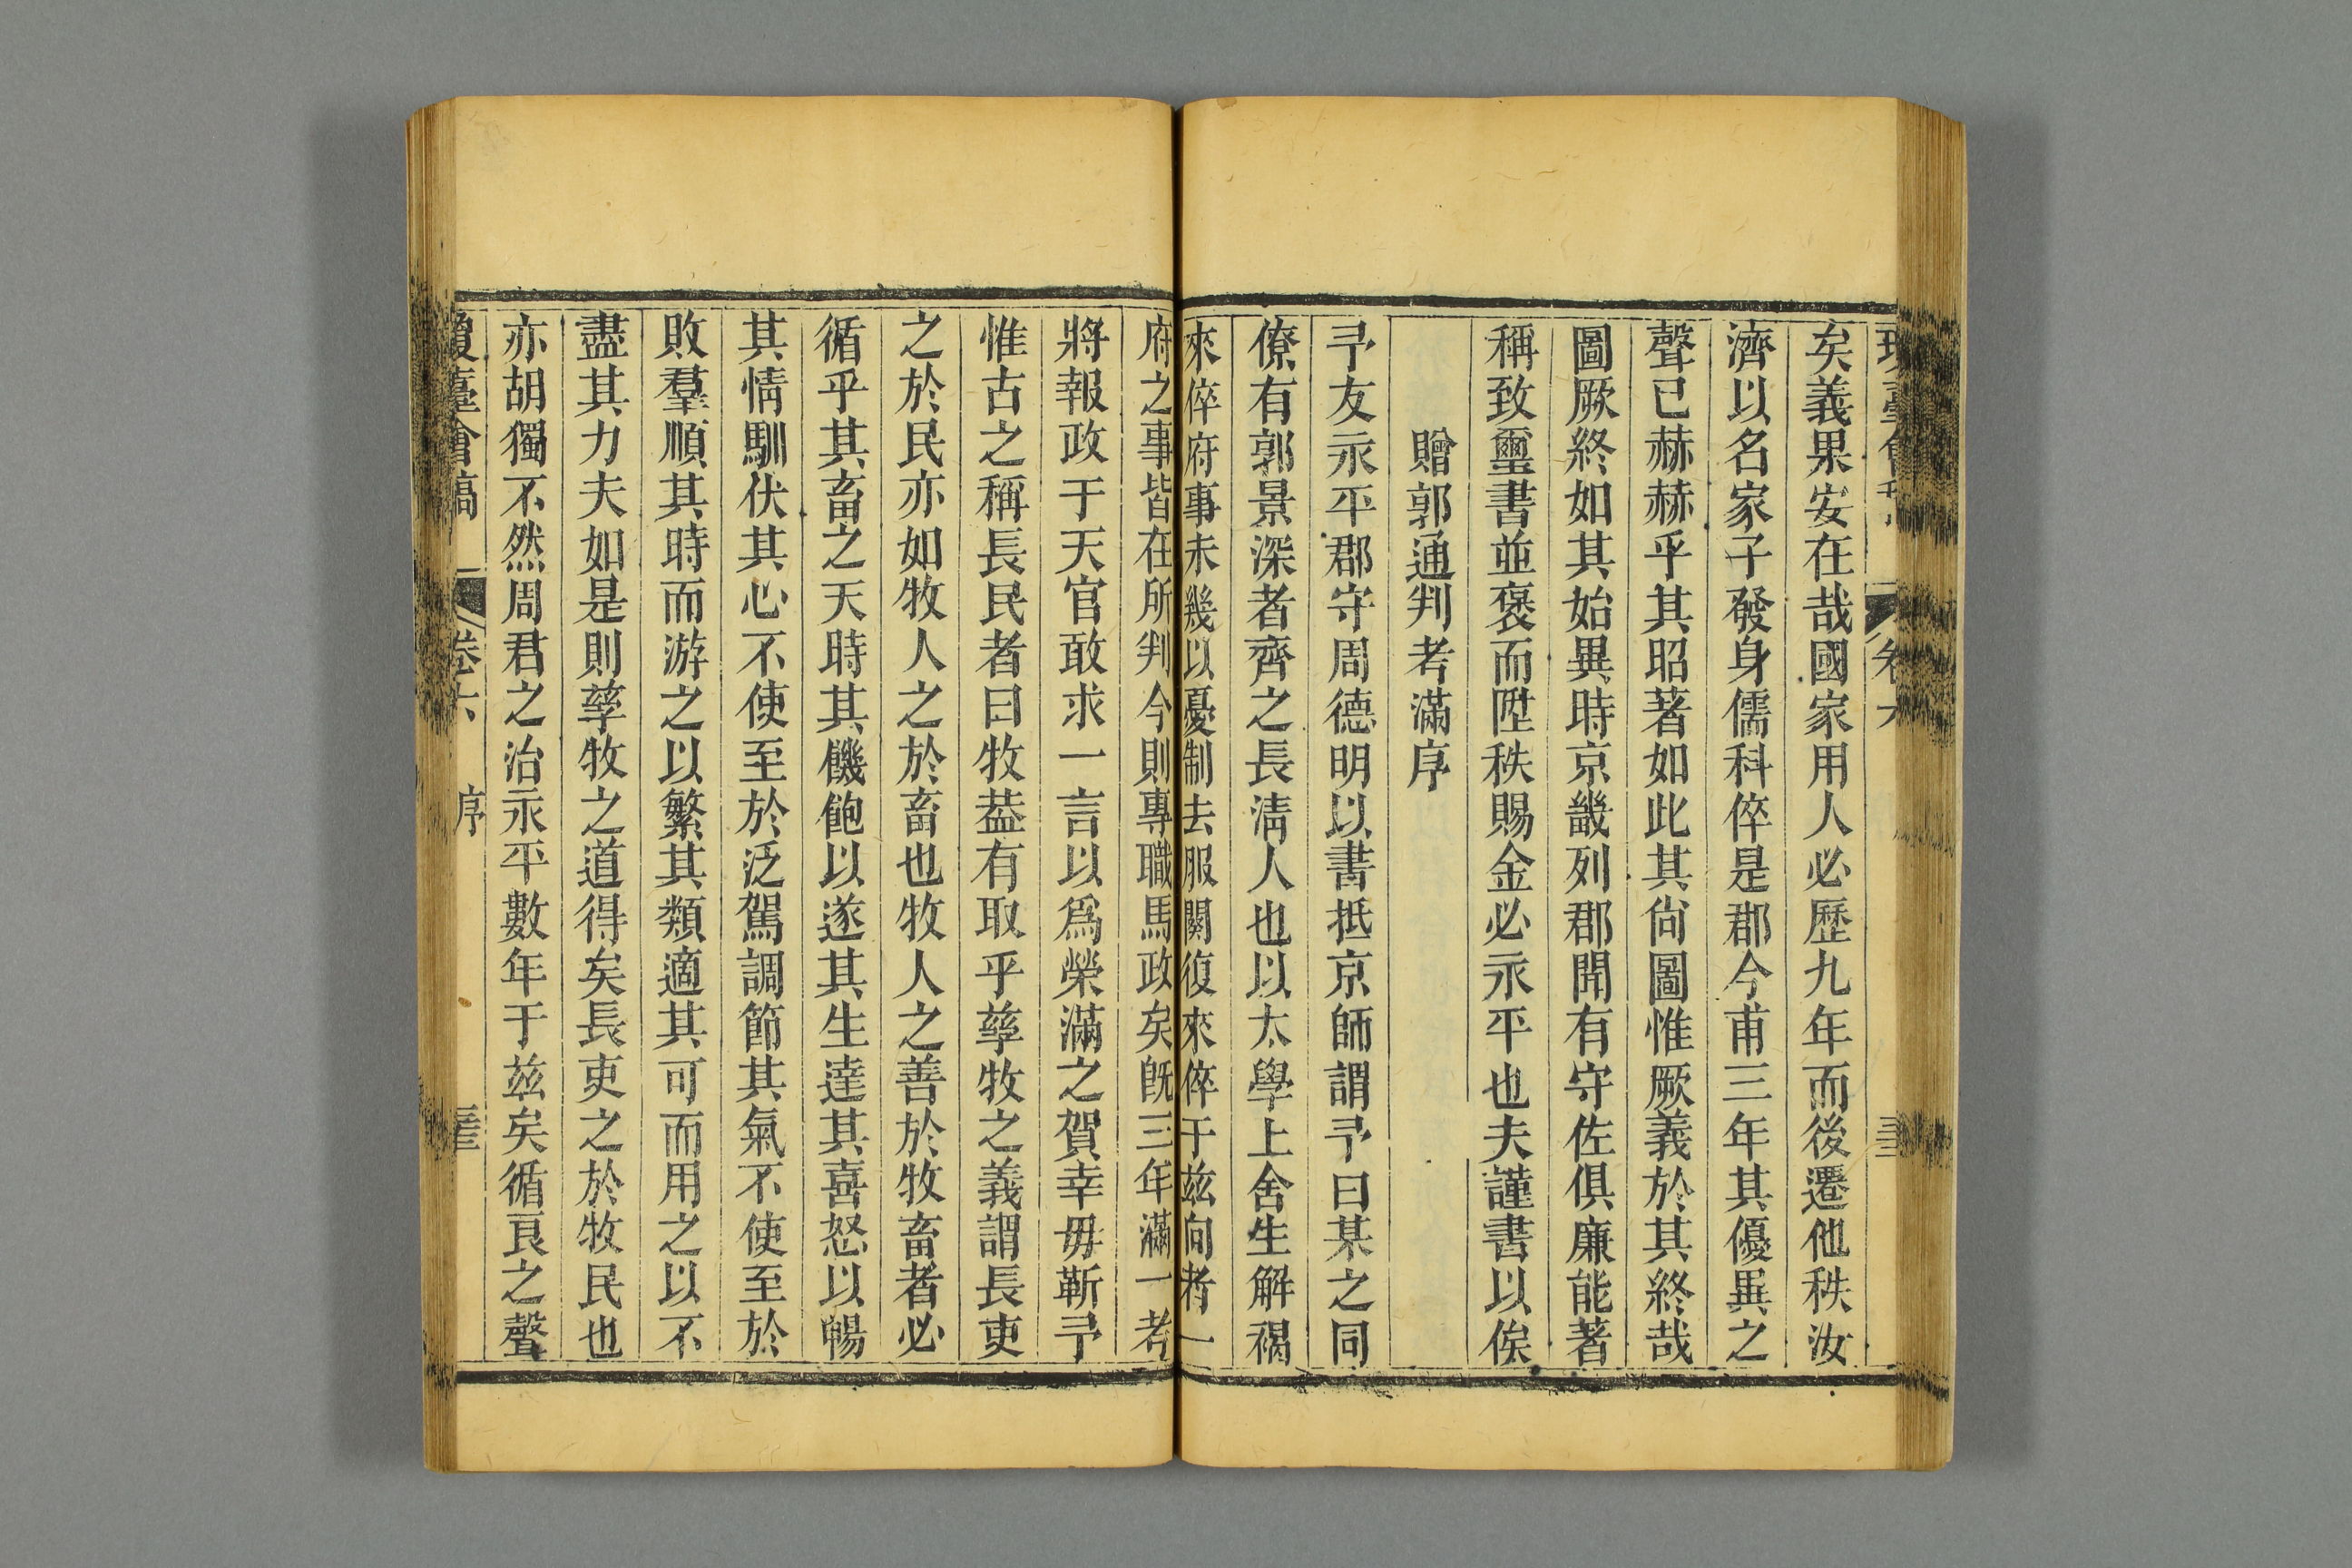 矣義果安在哉國家用人必歷九年而後遷他秩汝
濟以名家子發身儒科倅是郡今甫三年其優異之
聲已赫赫乎其昭著如此其尙圖惟厥義於其終哉
圖厥終如其始異時京畿列郡聞有守佐俱廉能著
稱致璽書並褒而陞秩賜金必永平也夫謹書以俟
贈郭通判考滿序
予友永平郡守周德明以書抵京師謂予曰某之同
僚有郭景深者齊之長淸人也以太學上舍生解褐
來倅府事未幾以憂制去服闋復來倅于兹向者一
府之事皆在所判今則專職馬政矣旣三年滿一考
將報政于天官敢求一言以爲榮滿之賀幸毋靳予
惟古之稱長民者曰牧葢有取乎孳牧之義謂長吏
之於民亦如牧人之於畜也牧人之善於牧畜者必
循乎其畜之天時其饑飽以遂其生達其喜怒以暢
其情馴伏其心不使至於泛駕調節其氣不使至於
敗羣順其時而游之以繁其類適其可而用之以不
盡其力夫如是則孳牧之道得矣長吏之於牧民也
亦胡獨不然周君之治永平數年于兹矣循良之聲
瓊臺會稿 卷六 序